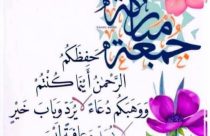 جمعة مباركة
حفظكم
الرحمن أينما كنتم
ووهبكم دعاء لا يرد وباب خير